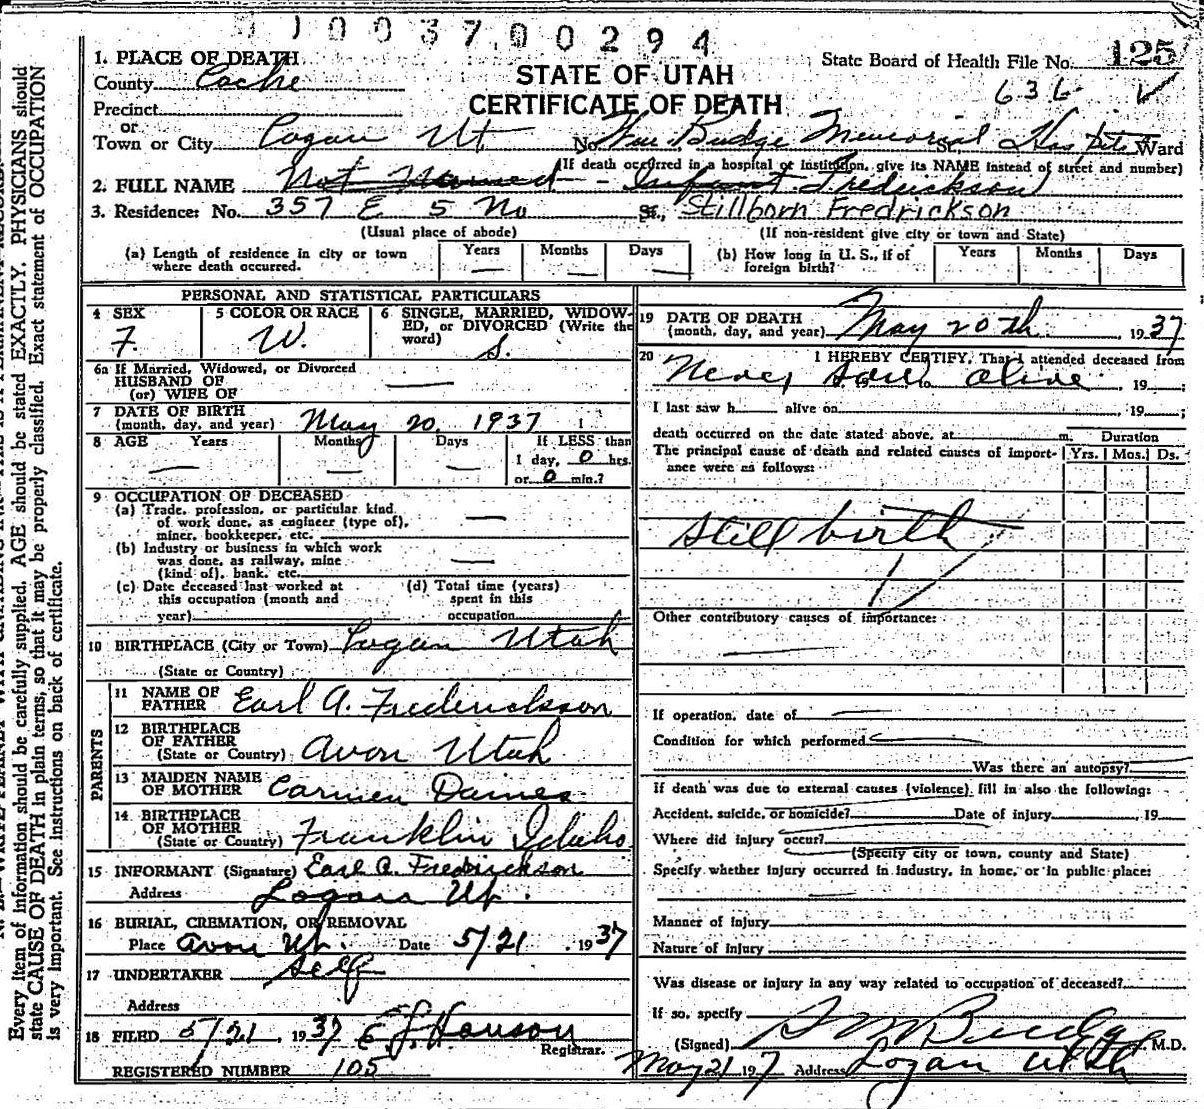 003700294
1. PLACE OF DEATH
State Board of Health File No. 125
County Cache
STATE OF UTAH
636
Precinct
CERTIFICATE OF DEATH
or
Town or City Logan Ut No. Wm Budge Memorial Hospital St., Ward
(If death occurred in a hospital or institution, give its NAME instead of street and number)
2. FULL NAME Not Named - Infant Fredrickson
3. Residence: No. 357 E 5 No St., Stillborn Fredrickson
(Usual place of abode) (If non-resident give city or town and State)
(a) Length of residence in city or town where death occurred. Years — Months — Days —
(b) How long in U. S., if of foreign birth? Years Months Days
PERSONAL AND STATISTICAL PARTICULARS
4 SEX F.
5 COLOR OR RACE W.
6 SINGLE, MARRIED, WIDOWED, or DIVORCED (Write the word) S.
6a If Married, Widowed, or Divorced
HUSBAND OF
(or) WIFE OF —
7 DATE OF BIRTH
(month, day, and year) May 20, 1937
8 AGE Years — Months — Days —
If LESS than
1 day, 0 hrs.
or 0 min.?
9 OCCUPATION OF DECEASED
(a) Trade, profession, or particular kind
of work done, as engineer (type of), —
miner, bookkeeper, etc.
(b) Industry or business in which work
was done, as railway, mine —
(kind of), bank, etc.
(c) Date deceased last worked at
this occupation (month and
year)
(d) Total time (years)
spent in this
occupation
10 BIRTHPLACE (City or Town) Logan Utah
(State or Country)
PARENTS
11 NAME OF
FATHER Earl A. Frederickson
12 BIRTHPLACE
OF FATHER
(State or Country) Avon Utah
13 MAIDEN NAME
OF MOTHER Carmen Daines
14 BIRTHPLACE
OF MOTHER
(State or Country) Franklin Idaho
15 INFORMANT (Signature) Earl A. Fredrickson
Address Logan Ut.
16 BURIAL, CREMATION, OR REMOVAL
Place Avon Ut. Date 5/21, 1937
17 UNDERTAKER Self
Address
18 FILED 5/21, 1937 E. J. Hanson
Registrar.
REGISTERED NUMBER 105
19 DATE OF DEATH
(month, day, and year) May 20th 1937
20 I HEREBY CERTIFY, That I attended deceased from
Never saw alive, 19 ;
I last saw h alive on , 19 ;
death occurred on the date stated above, at m. Duration
The principal cause of death and related causes of importance were as follows: Yrs. Mos. Ds.
Still birth
Other contributory causes of importance:
—
If operation, date of —
Condition for which performed —
Was there an autopsy? —
If death was due to external causes (violence) fill in also the following:
Accident, suicide, or homicide? Date of injury , 19
Where did injury occur?
(Specify city or town, county and State)
Specify whether injury occurred in industry, in home, or in public place:
—
Manner of Injury
Nature of Injury
Was disease or injury in any way related to occupation of deceased?
If so, specify
(Signed) S M Budge M.D.
May 21 1937 Address Logan Utah
Every item of information should be carefully supplied. AGE should be stated EXACTLY. PHYSICIANS should
state CAUSE OF DEATH in plain terms, so that it may be properly classified. Exact statement of OCCUPATION
is very important. See instructions on back of certificate.